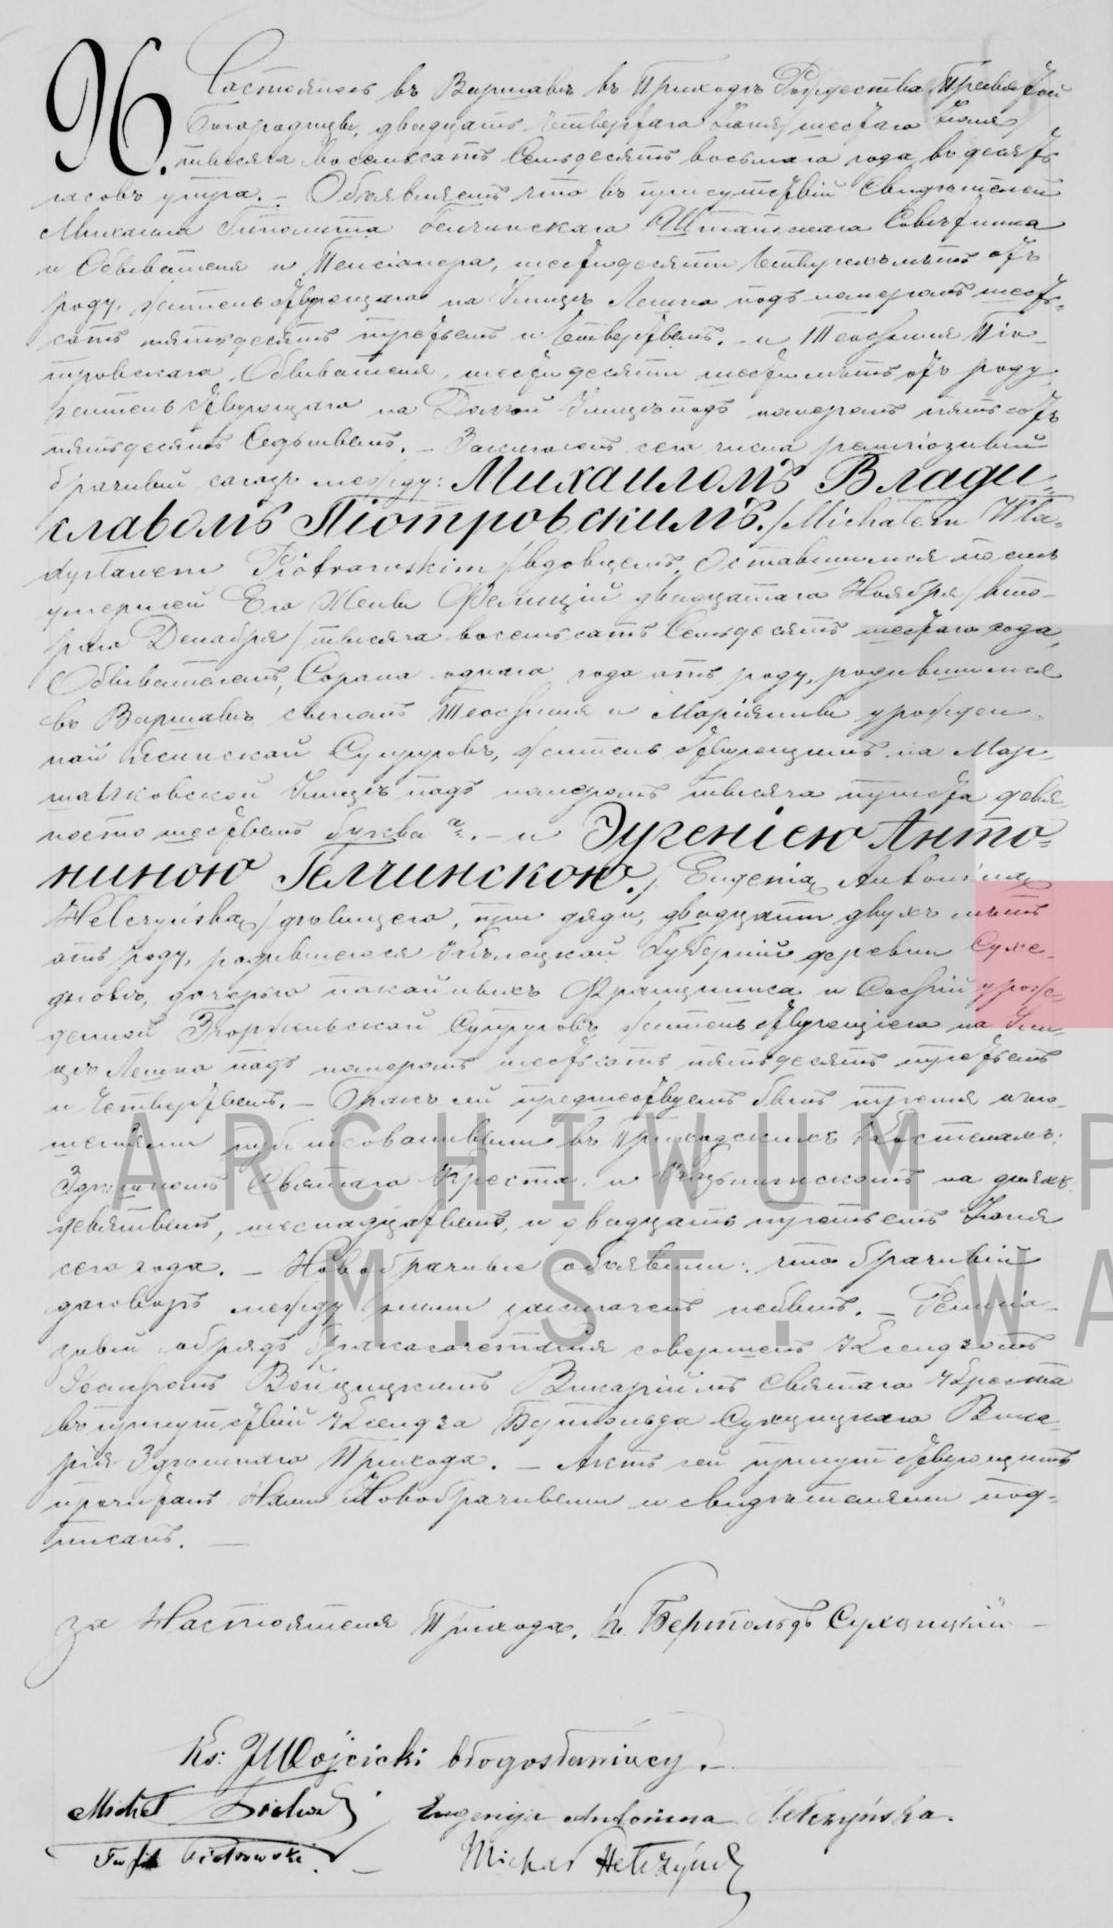 96.
Состоялось въ Варшавѣ въ Приходѣ Рождества Пресвятой
Богородицы, двадцать четвертаго Іюня/шестаго Іюля/
тысяча восемьсотъ семьдесятъ восьмаго года, въ десять
часовъ утра. – Объявляемъ что въ присутствіи свидѣтелей
Михаила Гелчинскаго Штатскаго Совѣтника
и Обывателя и Пенсіонера, шестидесяти четырехъ лѣтъ отъ
роду, жительствующаго на Улицѣ Лешно подъ номеромъ шесть-
сотъ пятьдесятъ третьемъ и четвертымъ. – и Теофиля Піо-
тровскаго Обывателя, шестидесяти шести лѣтъ отъ роду,
жительствующаго на Улицѣ подъ номеромъ пятьсотъ
пятьдесятъ седьмымъ. – Заключенъ сего числа религіозный
брачный союзъ между: Михаиломъ Влади-
славомъ Піотровскимъ./Michałem Wła-
dysławem Piotrowskim/вдовцемъ, оставшимся послѣ
умершей Его Жены Фелиціи двадцатаго Ноября/вто-
раго Декабря/тысяча восемьсотъ семьдесятъ шестаго года,
Обывателемъ, Сорока одного года отъ роду, родившимся
въ Варшавѣ, сыномъ Теофиля и Маріянны урожден-
ной Супруговъ, жительствующимъ на Мар-
шалковской Улицѣ подъ номеромъ тысяча триста девя-
носто шестымъ буква а. – и Эугеніею Анто-
ниною Гелчинскою./Eugenią Antoniną
Helczyńską/дѣвицею, при дядѣ, двадцати двухъ лѣтъ
отъ роду, родившеюся Кѣлецкой Губерніи деревни Сухе-
дновѣ, дочерью покойныхъ Францишка и Софіи урож-
денной Супруговъ жительствующею на Ули-
цѣ Лешно подъ номеромъ шестьсотъ пятьдесятъ третьемъ
и четвертымъ. – Браку сему предшествуемъ былъ тремя огло-
шеніями публикованными въ Приходскихъ Костелахъ:
Здѣшнемъ Святаго Креста, и на дняхъ:
девятымъ, шестнадцатымъ, и двадцать третьемъ Іюня
сего года. – Новобрачные объявили: что брачный
договоръ между ними заключенъ небылъ. – Религіо-
зный обрядъ бракосочетанія совершенъ Ксендзомъ
Іосифомъ Войцицкимъ Викарійемъ Святаго Креста
въ присутствіи Ксендза Бертольда Сухцицкаго Вика-
рія Здѣшняго Прихода. – Актъ сей присутствующимъ
прочитанъ Нами Новобрачными и свидѣтелями под-
писанъ. –
за Настоятеля Прихода. Кс. Бертольдъ Сухцицкій –
Ks: J Wójcicki błogosławiący. –
Michał Piotrowski Eugenija Antonina Helczyńska.
Teofil Piotrowski. – Michał Helczyński
ARCHIWUM P
M.ST. WA